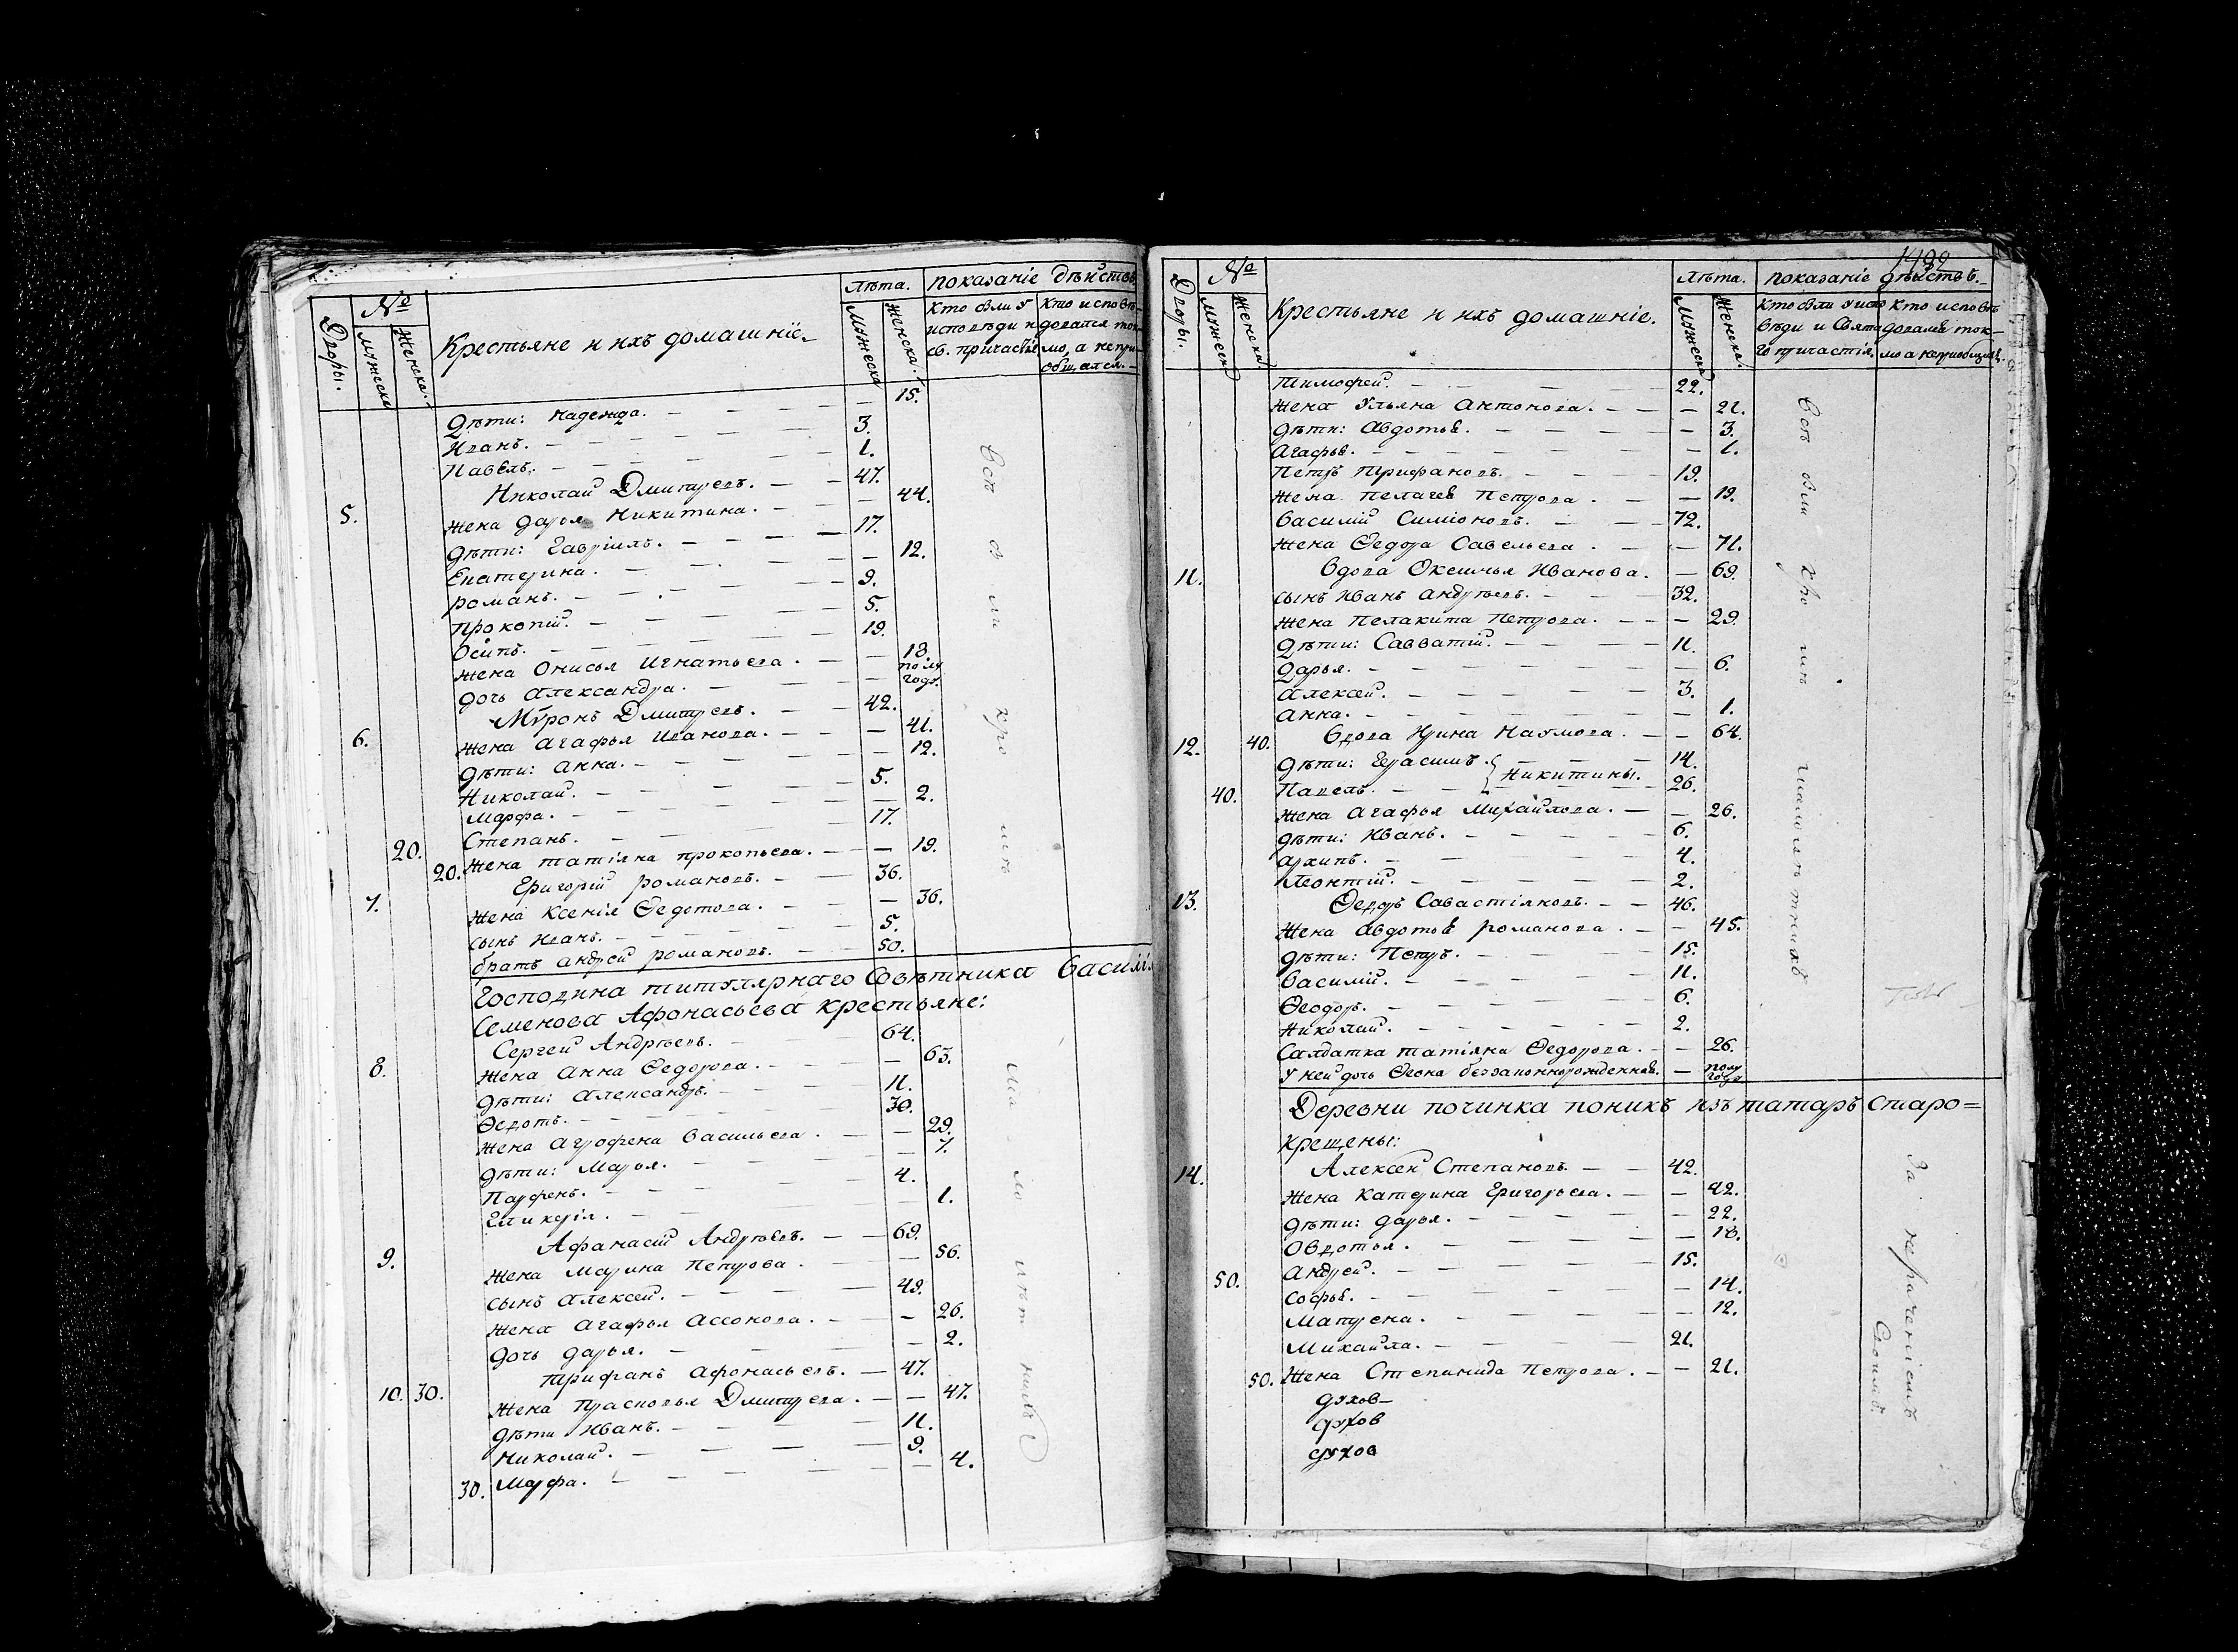 Дворы.
№
Мужеска
Женска.
Крестьяне и ихъ домашніе
Лѣта.
Мужеска
Женска.
показаніе дѣйствъ
кто были у исповѣди и св. причастія
кто исповѣдовался токмо, а непріобщался.
Дѣти: Надежда. 15.
Иванъ. 3.
Павелъ. 1.
5. Николай Дмитріевъ. 47.
Жена дарья Никитина. 44.
дѣти: Гавріилъ. 17.
Екатерина. 12.
романъ. 9.
прокопій. 5.
Осипъ. 19.
Жена Онисья Игнатьева. 18.
дочь Александра. полугода.
6. Муронъ Дмитріевъ. 42.
Жена Агафья Иванова. 41.
дѣти: Анна. 12.
Николай. 5.
Марфа. 2.
20. Степанъ. 17.
20. Жена татіяна прокопьева. 19.
7. Григорій романовъ. 36.
Жена Ксенія Ѳедотова. 36.
сынъ Иванъ. 5.
братъ андрей романовъ. 50.
Господина титулярнаго Совѣтника Василія
Семенова Афонасьева крестьяне:
8. Сергей Андрѣевъ. 64.
Жена Анна Ѳедорова. 63.
дѣти: Александръ. 11.
Ѳедотъ. 30.
Жена Агрофена Васильева. 29.
дѣти: Марья. 7.
Парфенъ. 4.
Гликерія. 1.
9. Афанасій Андрѣевъ. 69.
Жена Марина Петрова. 56.
сынъ Алексей. 49.
Жена Агафья Ассонова. 26.
дочь дарья. 2.
10. 30. трифанъ Афонасьевъ. 47.
Жена прасковья Дмитрева. 47.
дѣти Иванъ. 11.
Николай. 9.
30. Марфа. 4.
всѣ были кромѣ малолѣтнихъ
1499
Дворы.
№
Мужеска
Женска.
Крестьяне и ихъ домашніе.
Лѣта.
Мужеска
Женска.
показаніе дѣйствъ.
кто были у исповѣди и Святаго причастія.
кто исповѣдовался токмо а непріобщался.
тимофей. 22.
Жена Ульяна Антонова. 21.
дѣти: Авдотья. 3.
Агафья. 1.
Петръ трифановъ. 19.
Жена пелагея Петрова. 19.
Василій Симіоновъ. 72.
Жена Ѳедора Савельева. 71.
11. Вдова Оксинья Иванова. 69.
сынъ Иванъ андрѣевъ. 32.
Жена Пелакита Петрова. 29.
дѣти: Савватій. 11.
Дарья. 6.
Алексей. 3.
Анна. 1.
12. 40. Вдова Ирина Наумова. 64.
дѣти: Герасимъ. 14.
Никитины.
40. Павелъ. 26.
Жена Агафья Михайлова. 26.
дѣти: Иванъ. 6.
архипъ. 4.
Леонтій. 2.
13. Ѳедоръ Савастіяновъ. 46.
Жена Авдотья романова. 45.
дѣти: Петръ. 15.
Василій. 11.
Ѳеодоръ. 6.
Николай. 2.
Салдатка татіяна Ѳедорова. 26.
у ней дочь Ѳеона беззаконнорожденная. полугода
Деревни починка поникъ изъ татаръ старо=
крещены:
14. Алексей Степановъ. 42.
Жена Катерина Григорьева. 42.
дѣти: дарья. 22.
Овдотья. 18.
50. Андрей. 15.
Софья. 14.
Матрена. 12.
Михайла. 21.
50. Жена Степанида Петрова. 21.
духов
духов
духов
Всѣ были кромѣ малолѣтнихъ
За нераченіемъ своимъ.